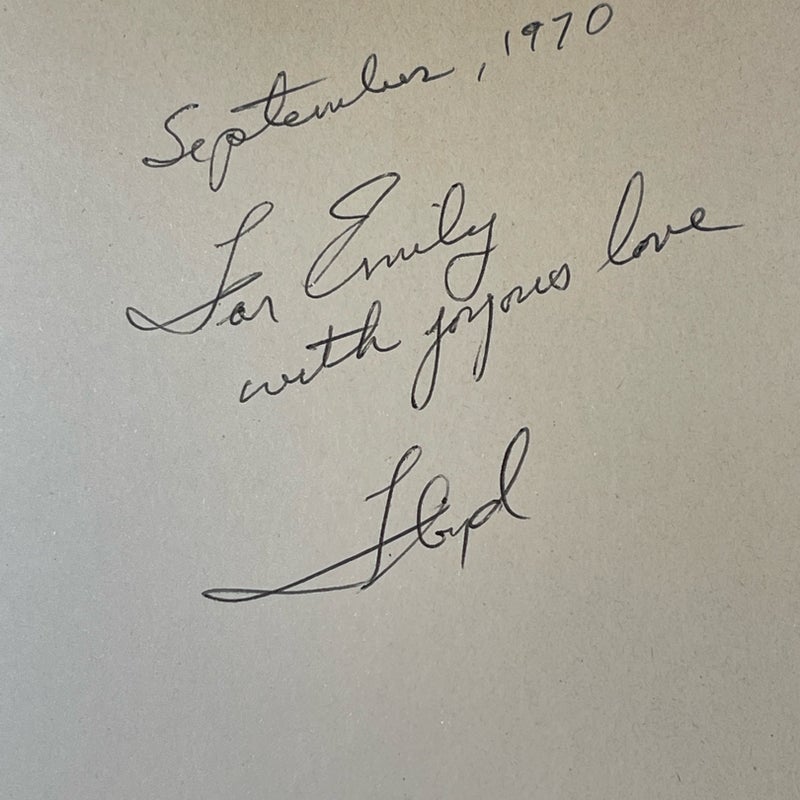 September, 1970
For Emily
with joyous love
Floyd